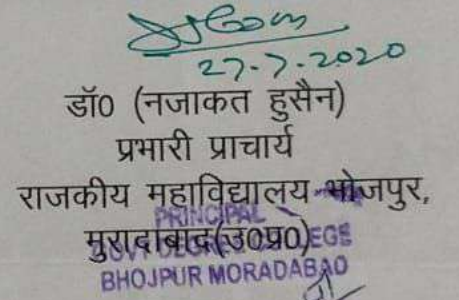 27-7-2020
डॉ0 (नजाकत हुसैन)
प्रभारी प्राचार्य
राजकीय महाविद्यालय भोजपुर,
मुरादाबाद(उ0प्र0)
PRINCIPAL
GOVT DEGREE COLLEGE
BHOJPUR MORADABAD